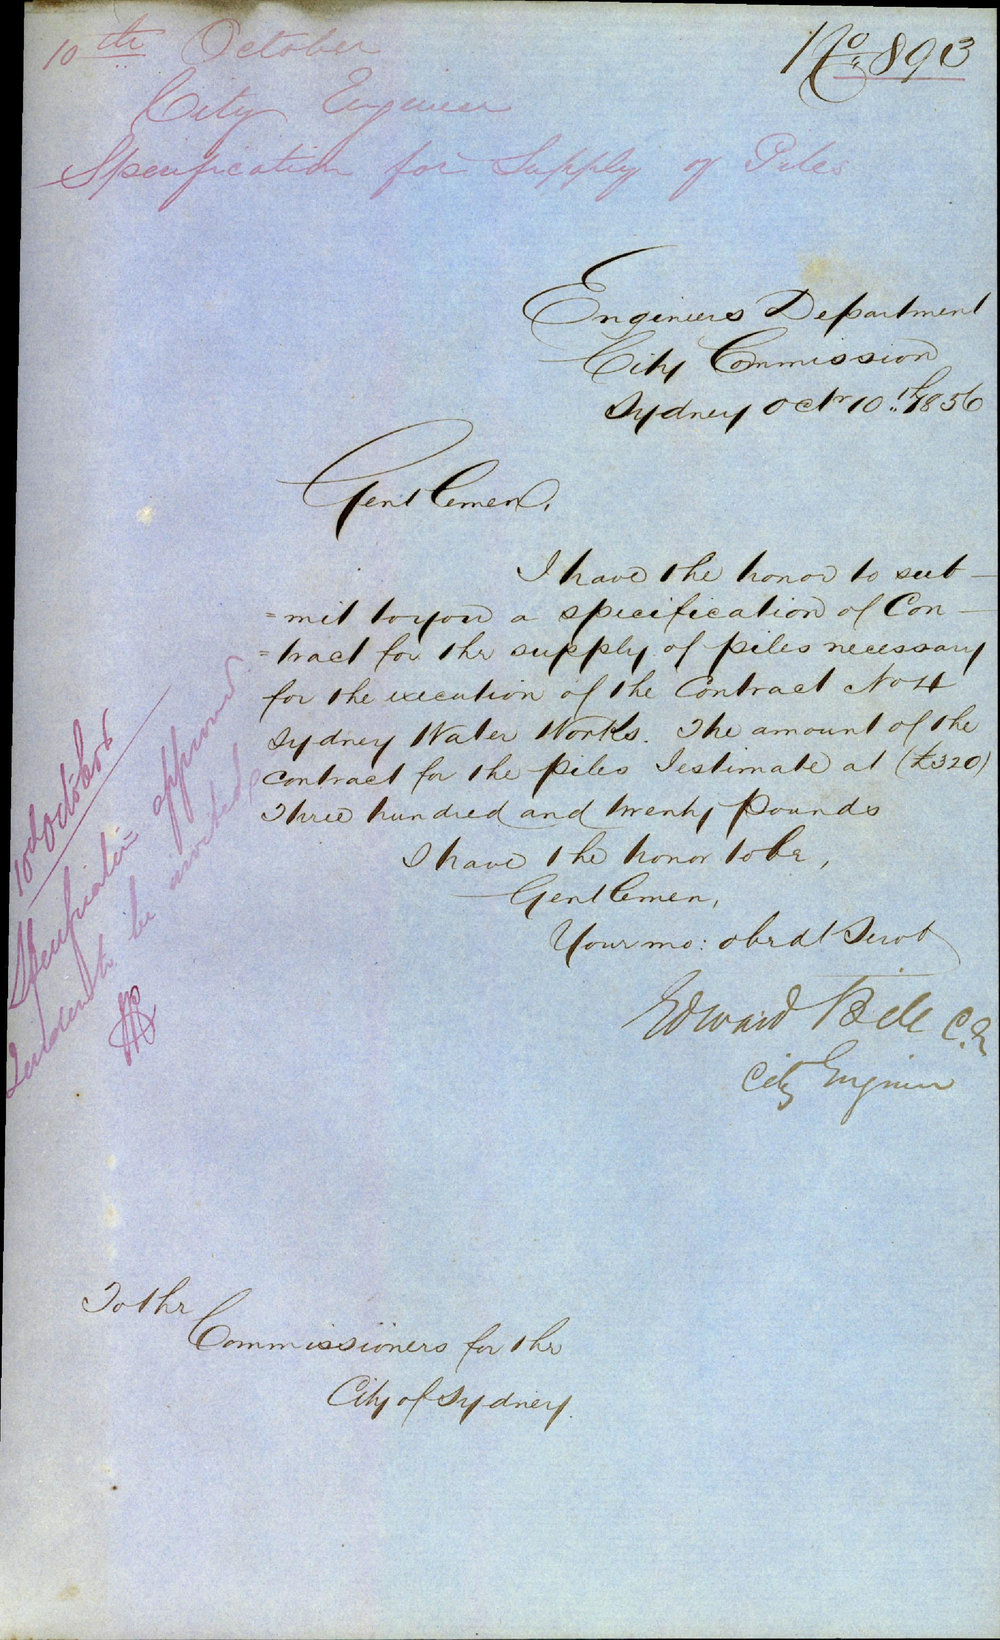 10th October
City Engineer
Specification for Supply of Piles
No. 893
Engineers Department
City Commission
Sydney Octr 10.th 1856
Gentlemen,
I have the honor to sub-
=mit to you a specification of Con-
=tract for the supply of piles necessary
for the execution of the Contract No 4
Sydney Water Works. The amount of the
contract for the piles I estimate at (£320)
Three hundred and twenty Pounds
I have the honor to be,
Gentlemen,
Your mo: obedt Servt
Edward Bell C.E
City Engineer
10th October
Specification approved
Tenders to be invited
To the
Commissioners for the
City of Sydney.